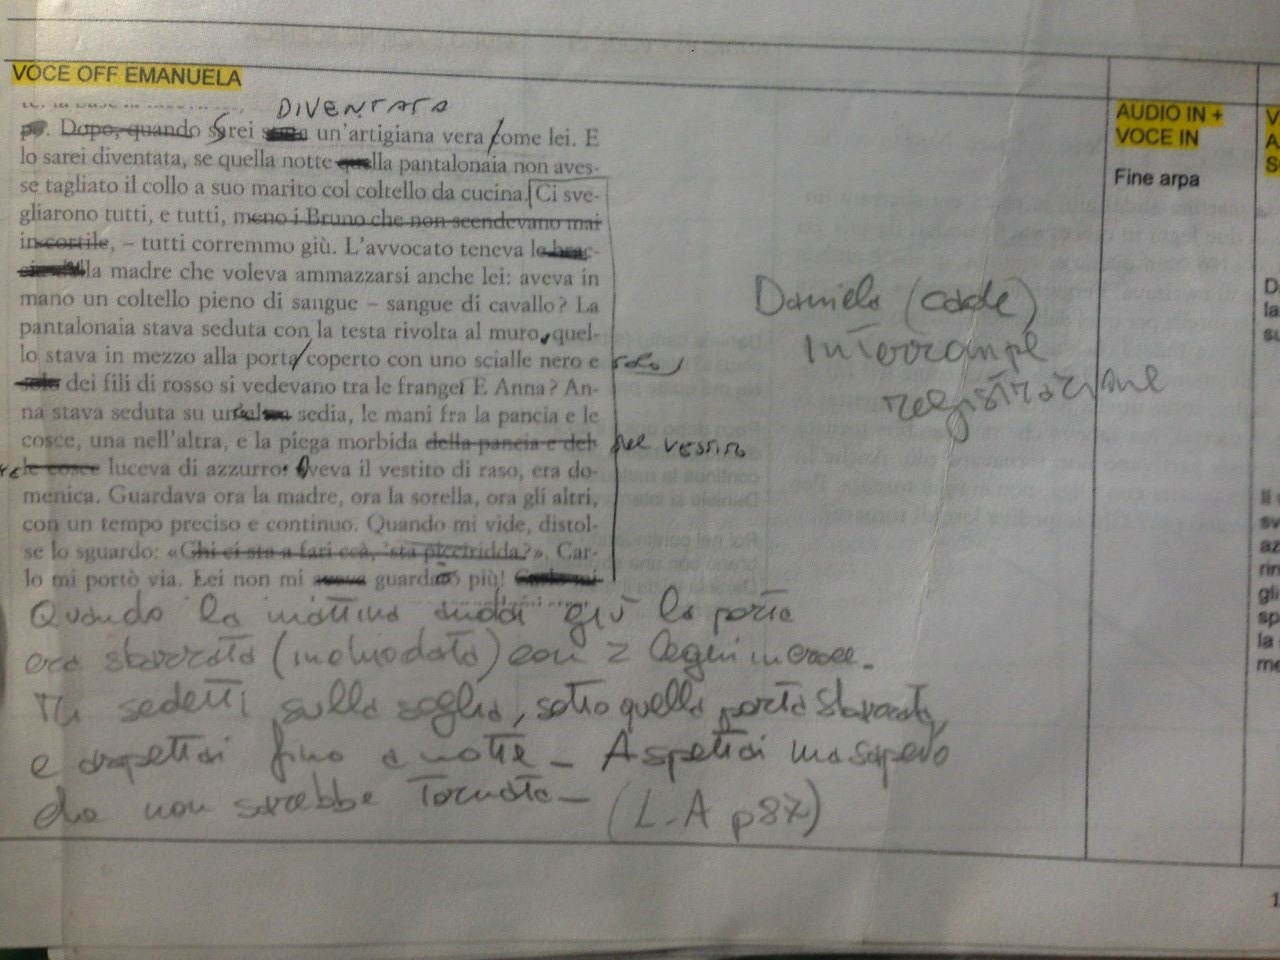 VOCE OFF EMANUELA
DIVENTATA
Dopo, quando sarei un'artigiana vera come lei. E
lo sarei diventata, se quella notte quella pantalonaia non aves-
se tagliato il collo a suo marito col coltello da cucina. Ci sve-
gliarono tutti, e tutti, meno i Bruno che non scendevano mai
in cortile, – tutti corremmo giù. L'avvocato teneva le brac-
alla madre che voleva ammazzarsi anche lei: aveva in
mano un coltello pieno di sangue – sangue di cavallo? La
pantalonaia stava seduta con la testa rivolta al muro, quel-
lo stava in mezzo alla porta coperto con uno scialle nero e solo
solo dei fili di rosso si vedevano tra le frange. E Anna? An-
na stava seduta su una sedia, le mani fra la pancia e le
cosce, una nell'altra, e la piega morbida della pancia e del- del vestito
le cosce luceva di azzurro. Aveva il vestito di raso, era do-
menica. Guardava ora la madre, ora la sorella, ora gli altri,
con un tempo preciso e continuo. Quando mi vide, distol-
se lo sguardo: «Chi ci sta a fari ccà, 'sta picciridda?». Car-
lo mi portò via. Lei non mi aveva guardato più! Carlo mi
Quando la mattina andai giù la porta
era sbarrata (inchiodata) con 2 legni in croce –
Mi sedetti sulla soglia, sotto quella porta sbarrata,
e aspettai fino a notte – Aspettai ma sapevo
che non sarebbe tornata – (L.A p87)
Daniela (cade)
Interrompe
registrazione
AUDIO IN +
VOCE IN
Fine arpa